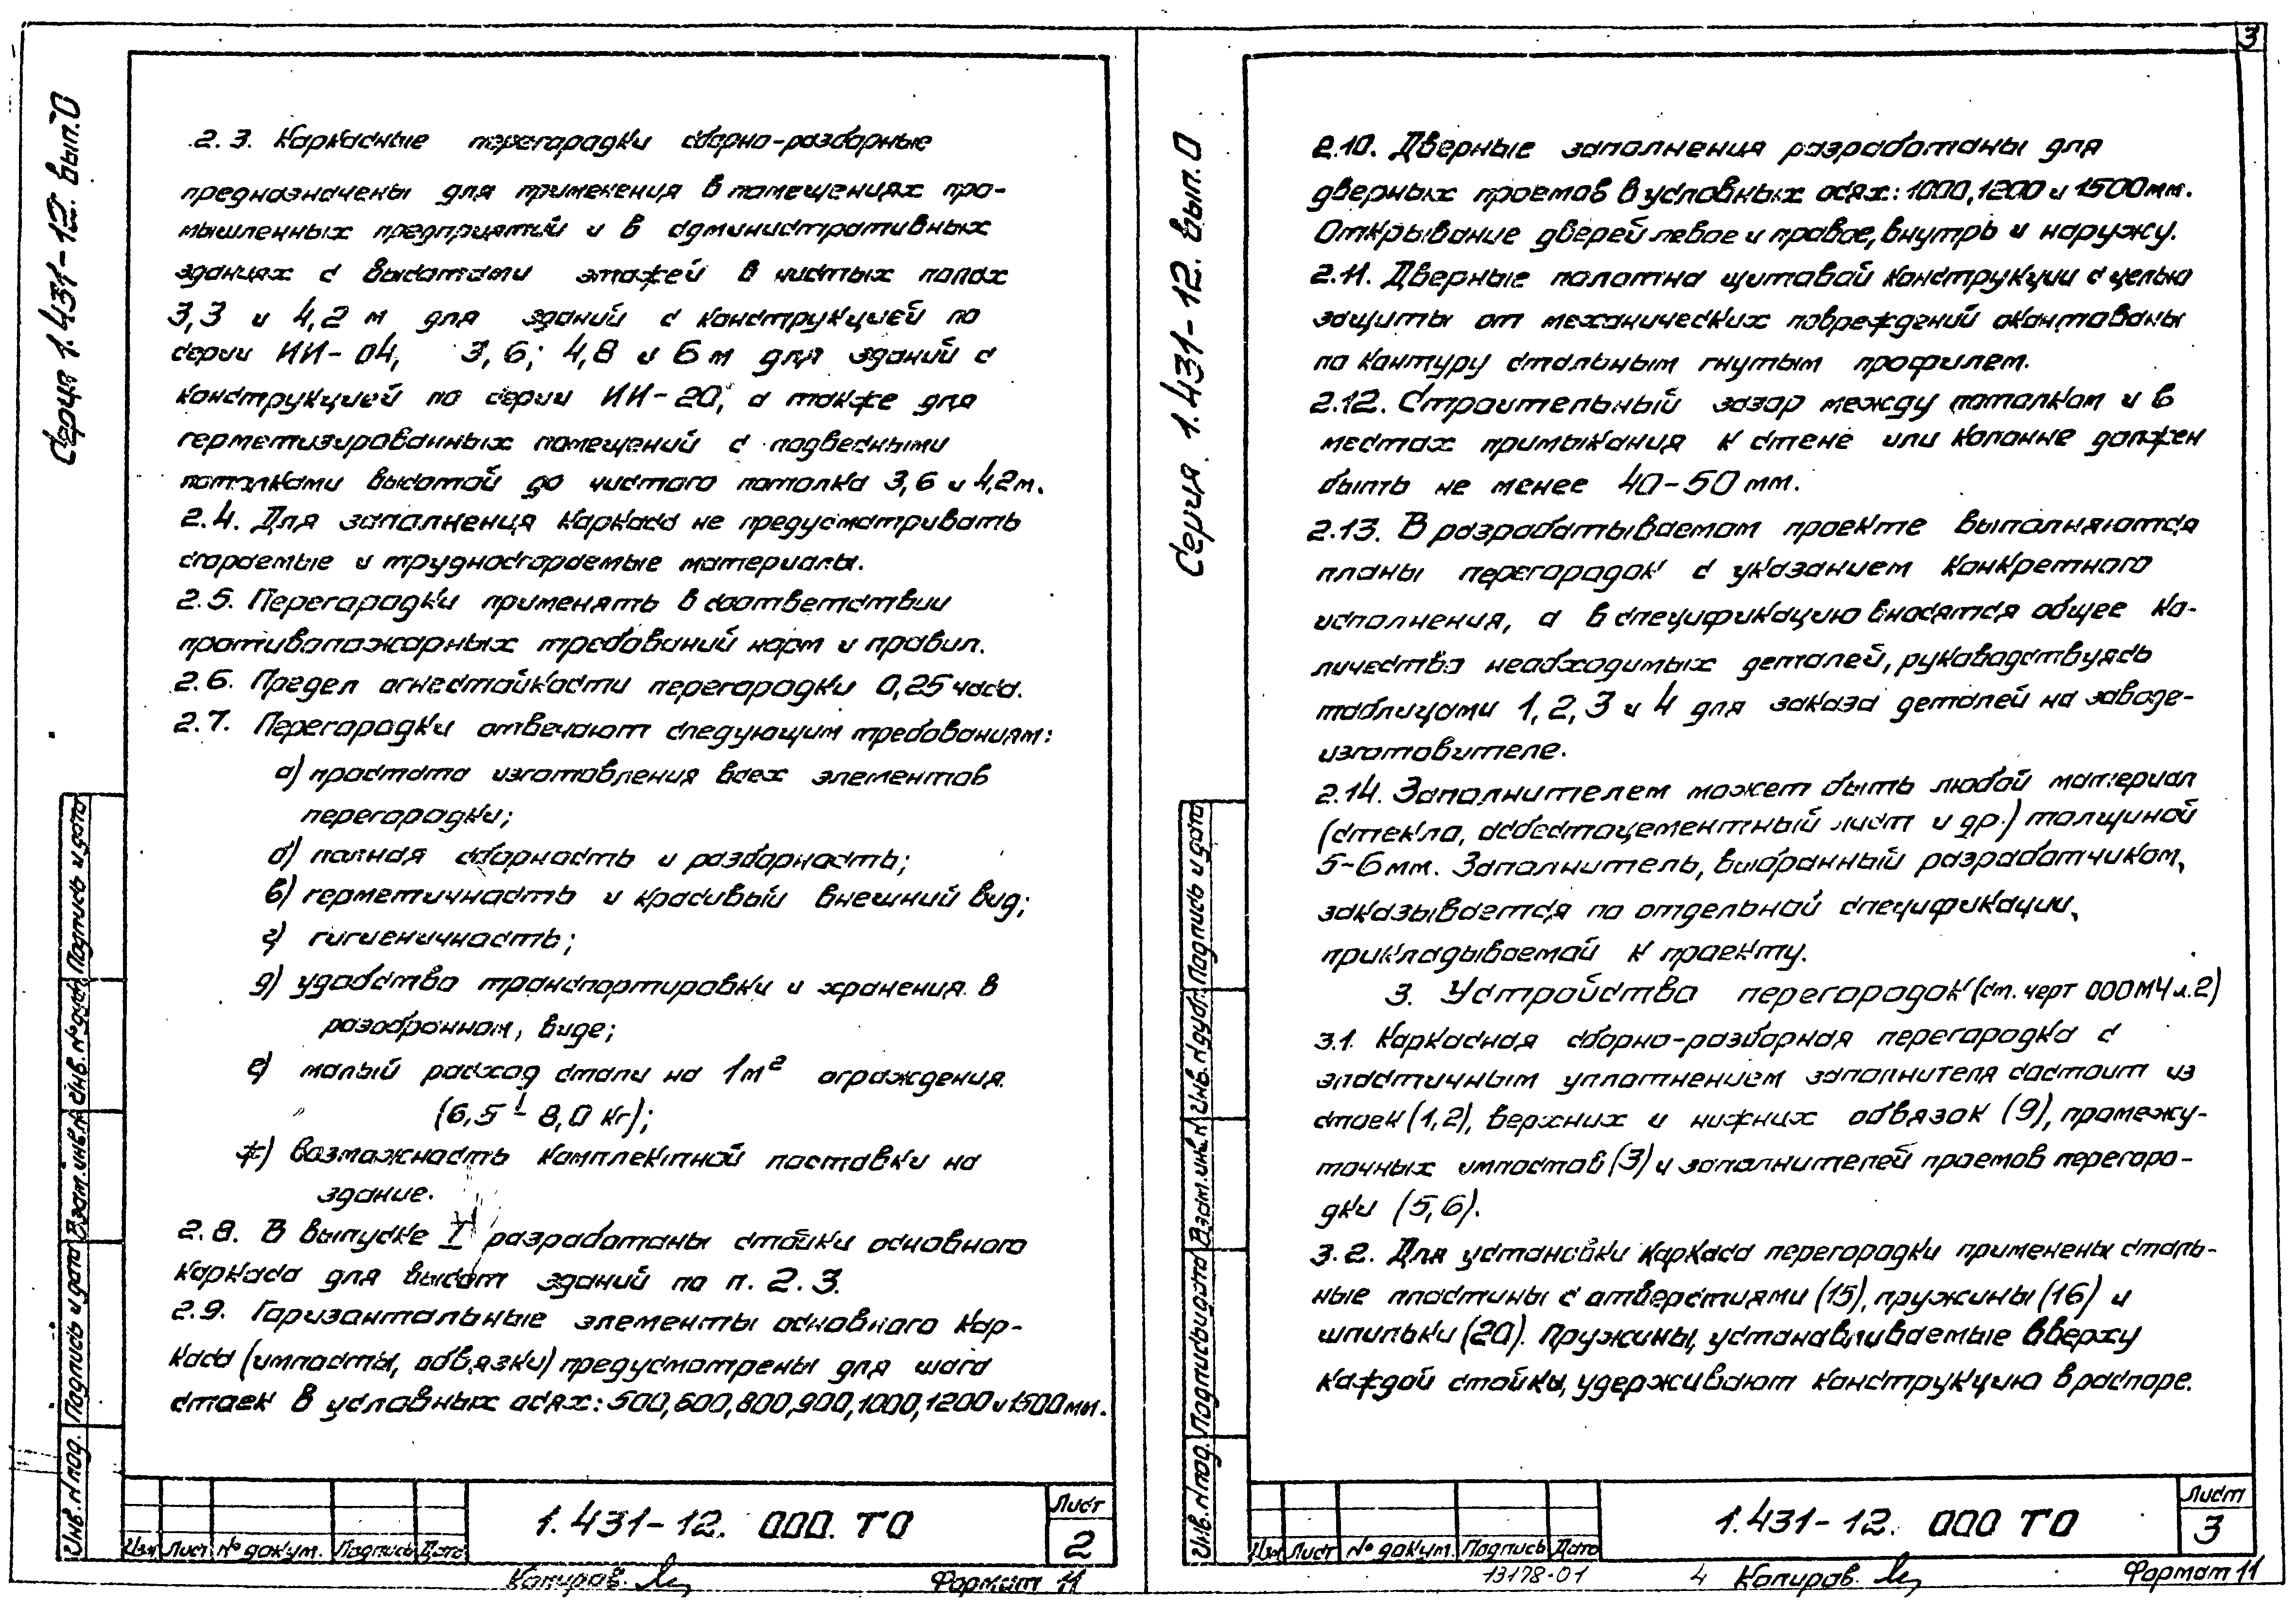 3
Серия 1.431-12. вып.0
2.3. Каркасные перегородки сборно-разборные
предназначены для применения в помещениях про-
мышленных предприятий и в административных
зданиях с высотами этажей в чистых полах
3,3 и 4,2 м для зданий с конструкцией по
серии ИИ-04, 3,6; 4,8 и 6 м для зданий с
конструкцией по серии ИИ-20, а также для
герметизированных помещений с подвесными
потолками высотой до чистого потолка 3,6 и 4,2 м.
2.4. Для заполнения каркаса не предусматривать
сгораемые и трудносгораемые материалы.
2.5. Перегородки применять в соответствии
противопожарных требований норм и правил.
2.6. Предел огнестойкости перегородки 0,25 часа.
2.7. Перегородки отвечают следующим требованиям:
а) простота изготовления всех элементов
перегородки;
б) полная сборность и разборность;
в) герметичность и красивый внешний вид;
г) гигиеничность;
д) удобство транспортировки и хранения в
разобранном, виде;
е) малый расход стали на 1м² ограждения.
(6,5 - 8,0 кг);
ж) возможность комплектной поставки на
здание.
2.8. В выпуске I разработаны стойки основного
каркаса для высот зданий по п. 2.3.
2.9. Горизонтальные элементы основного кар-
каса (импосты, обвязки) предусмотрены для шага
стоек в условных осях: 500, 600, 800, 900, 1000, 1200 и 1500 мм.
Инв. N под. Подпись и дата Взам. инв. N Инв. N дубл. Подпись и дата
Изм Лист № докум. Подпись Дата
1.431-12. 000. ТО
Лист
2
Копиров.
Формат 11
Серия 1.431-12. вып.0
2.10. Дверные заполнения разработаны для
дверных проемов в условных осях: 1000, 1200 и 1500 мм.
Открывание дверей левое и правое, внутрь и наружу.
2.11. Дверные полотна щитовой конструкции с целью
защиты от механических повреждений окантованы
по контуру стальным гнутым профилем.
2.12. Строительный зазор между потолком и в
местах примыкания к стене или колонне должен
быть не менее 40-50 мм.
2.13. В разрабатываемом проекте выполняются
планы перегородок с указанием конкретного
исполнения, а в спецификацию вносятся общее ко-
личество необходимых деталей, руководствуясь
таблицами 1, 2, 3 и 4 для заказа деталей на заводе-
изготовителе.
2.14. Заполнителем может быть любой материал
(стекло, асбестоцементный лист и др.) толщиной
5-6 мм. Заполнитель, выбранный разработчиком,
заказывается по отдельной спецификации,
прикладываемой к проекту.
3. Устройство перегородок (см. черт 000МЧ л.2)
3.1. Каркасная сборно-разборная перегородка с
эластичным уплотнением заполнителя состоит из
стоек (1,2), верхних и нижних обвязок (9), промежу-
точных импостов (3) и заполнителей проемов перегоро-
дки (5,6).
3.2. Для установки каркаса перегородки применены сталь-
ные пластины с отверстиями (15), пружины (16) и
шпильки (20). Пружины, устанавливаемые вверху
каждой стойки, удерживают конструкцию в распоре.
Инв. N под. Подпись и дата Взам. инв. N Инв. N дубл. Подпись и дата
Изм Лист № докум. Подпись Дата
1.431-12. 000 ТО
Лист
3
13178-01
4
Копиров.
Формат 11